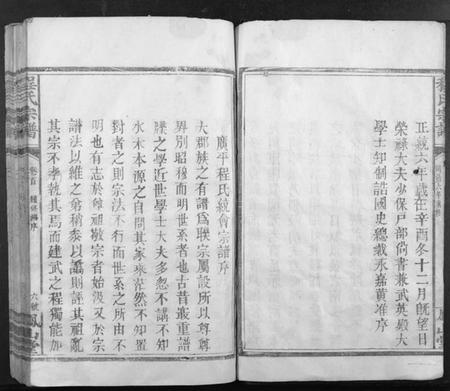 正統六年歲在辛酉冬十二月既望日
榮祿大夫少保戶部尚書兼武英殿大
學士知制誥國史總裁永嘉黃淮序
程氏宗譜
廣平程氏統會宗譜序
大郡族之有譜爲聯宗屬設所以尊尊
界別昭穆而明世系者也古昔最重譜
牒之學近世學士大夫多恝不講不知
水木本源之自問其家乘茫然不知置
對者之則宗法不行而世系之所由不
明也有志於尊祖敬宗者始汲又於宗
譜法以維之翕稍黍以譌則誣其祖亂
其宗不孝孰甚焉而建武之程獨能加
程氏宗譜
卷首
六號
鳳山堂